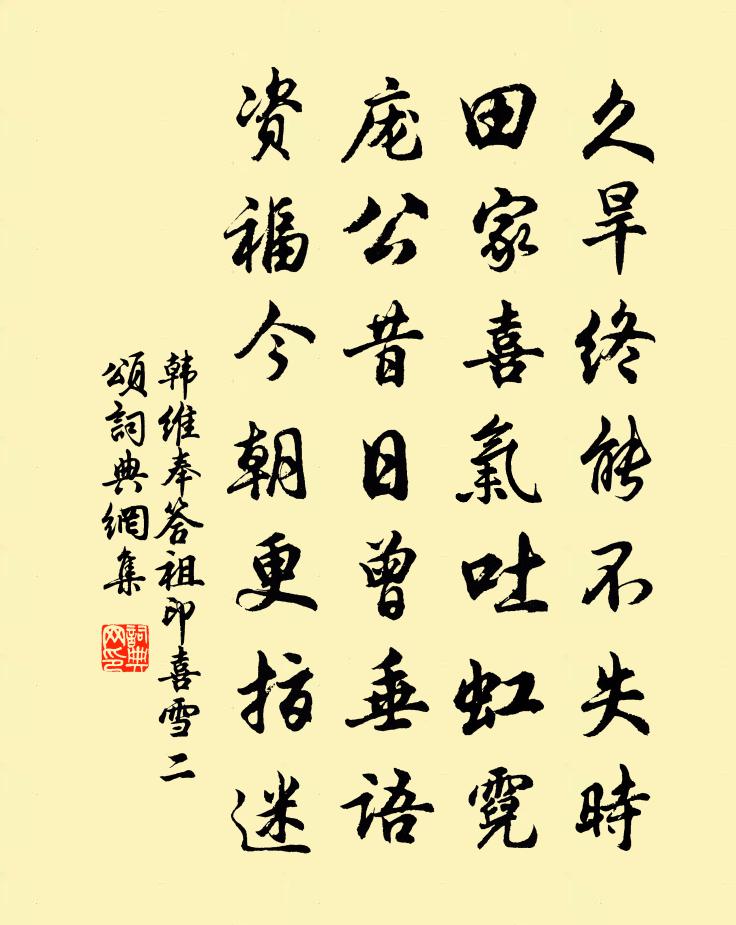 久旱终能不失時
田家喜氣吐虹霓
庞公昔日曾垂语
资福今朝更指迷
韩维奉答祖印喜雪二
頌詞典網集
詞典
网印